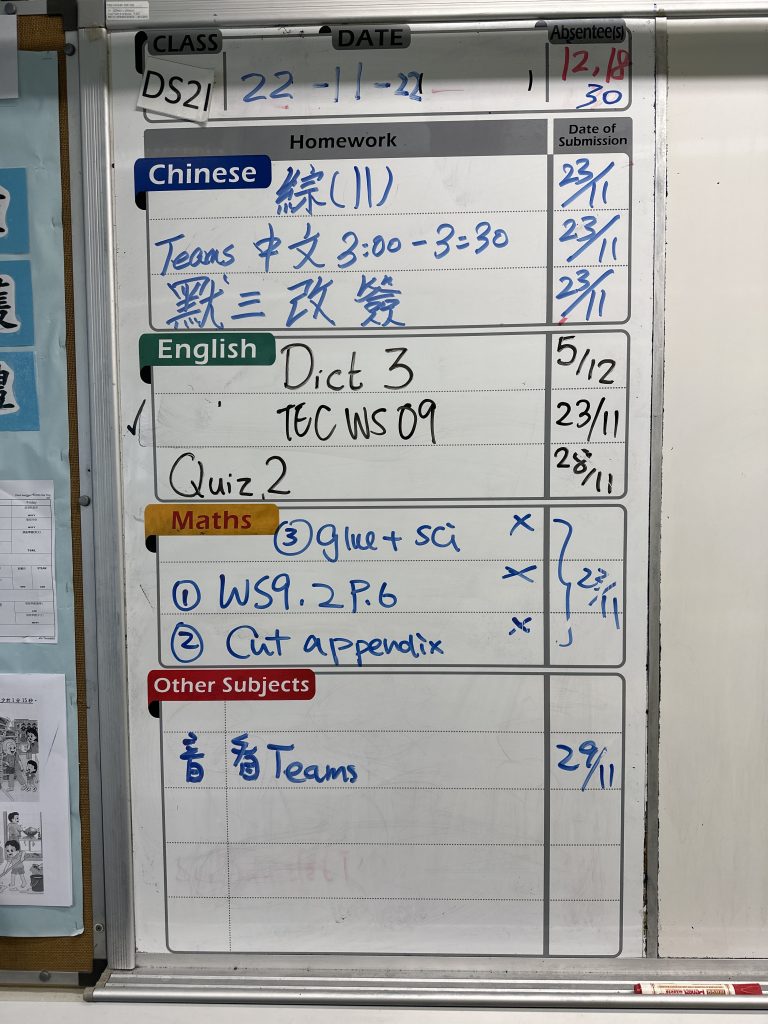 CLASS DATE Absentee(s)
DS21 22-11-22 ( ) 12, 18
30
Homework Date of Submission
Chinese 綜(11) 23/11
Teams 中文 3:00-3:30 23/11
默三改簽 23/11
English Dict 3 5/12
✓ TEC WS 09 23/11
Quiz 2 28/11
Maths ③ glue + sci ×
① WS9.2 P.6 × 23/11
② Cut appendix ×
Other Subjects
音 看Teams 29/11